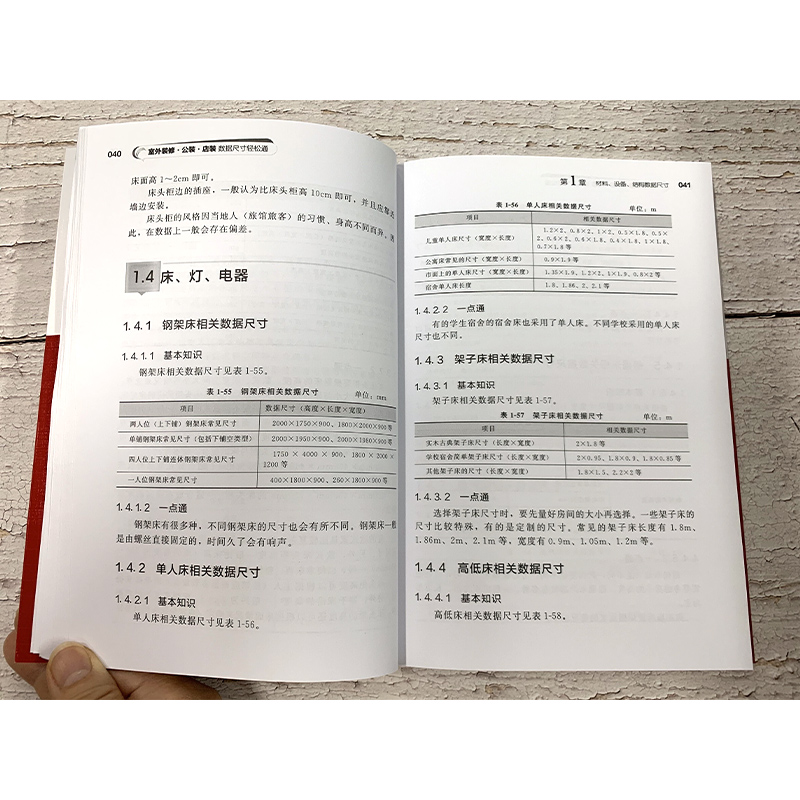 040 室外装修·公装·店装 数据尺寸轻松通
床面高 1～2cm 即可。
床头柜边的插座，一般认为比床头柜高 10cm 即可，并且应靠近
墙边安装。
床头柜的风格因当地人（旅馆旅客）的习惯、身高不同而异，
此，在数据上一般会存在偏差。
1.4 床、灯、电器
1.4.1 钢架床相关数据尺寸
1.4.1.1 基本知识
钢架床相关数据尺寸见表 1-55。
表 1-55 钢架床相关数据尺寸 单位：mm
项目 数据尺寸（高度×长度×宽度）
两人位（上下铺）钢架床常见尺寸 2000×1750×900、1800×2000×900 等
单铺钢架床常见尺寸（包括下铺空类型） 2000×1950×900、2000×1980×900 等
四人位上下铺连体钢架床常见尺寸 1750 × 4000 × 900、1800 × 2000 ×
1200 等
一人位钢架床常见尺寸 400×1800×900、260×1800×900 等
1.4.1.2 一点通
钢架床有很多种，不同钢架床的尺寸也会有所不同。钢架床一般
是由螺丝直接固定的，时间久了会有响声。
1.4.2 单人床相关数据尺寸
1.4.2.1 基本知识
单人床相关数据尺寸见表 1-56。
第1章 材料、设备、结构数据尺寸 041
表 1-56 单人床相关数据尺寸 单位：m
项目 相关数据尺寸
儿童单人床尺寸（宽度×长度） 1.2×2、0.8×2、1×2、0.5×1.8、0.5×
2、0.6×2、0.4×1.8、0.4×1.8、1×1.8、
0.7×1.8 等
公寓床常见的尺寸（宽度×长度） 0.9×1.9 等
市面上的单人床尺寸（宽度×长度） 1.35×1.9、1.2×2、1×1.9、0.8×2 等
宿舍单人床长度 1.8、1.86、2、2.1 等
1.4.2.2 一点通
有的学生宿舍的宿舍床也采用了单人床。不同学校采用的单人床
尺寸也不同。
1.4.3 架子床相关数据尺寸
1.4.3.1 基本知识
架子床相关数据尺寸见表 1-57。
表 1-57 架子床相关数据尺寸 单位：m
项目 相关数据尺寸
实木古典架子床尺寸（长度×宽度） 2×1.8 等
学校宿舍简单架子床尺寸（长度×宽度） 2×0.95、1.8×0.9、1.8×0.85 等
其他架子床的尺寸（长度×宽度） 1.8×1.5、2.2×2 等
1.4.3.2 一点通
选择架子床尺寸时，要先量好房间的大小再选择。一些架子床的
尺寸比较特殊，有的是定制的尺寸。常见的架子床长度有 1.8m、
1.86m、2m、2.1m 等，宽度有 0.9m、1.05m、1.2m 等。
1.4.4 高低床相关数据尺寸
1.4.4.1 基本知识
高低床相关数据尺寸见表 1-58。